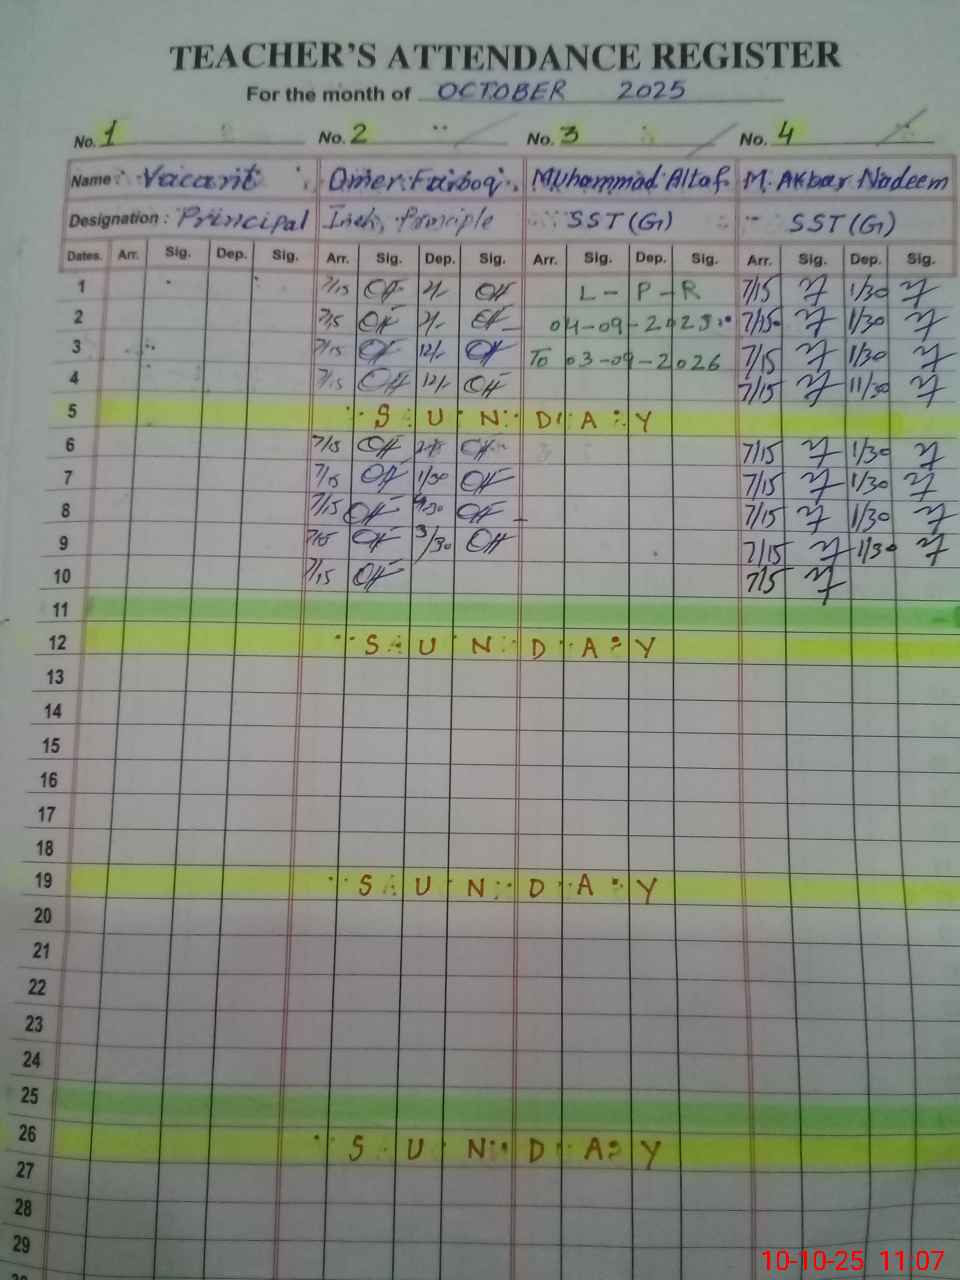 TEACHER'S ATTENDANCE REGISTER
For the month of OCTOBER 2025
No. 1 No. 2 No. 3 No. 4
Name: Vacant Omer Farooq Muhammad Altaf M. Akbar Nadeem
Designation: Principal Inch, Principle SST (G) SST (G)
Dates. Arr. Sig. Dep. Sig. Arr. Sig. Dep. Sig. Arr. Sig. Dep. Sig. Arr. Sig. Dep. Sig.
1 7/15 2/- L - P - R 7/15 1/30
2 7/15 2/- 04-09-2025 7/15 1/30
3 7/15 12/- To 03-09-2026 7/15 1/30
4 7/15 12/- 7/15 11/30
5 SUNDAY
6 7/15 7/15 1/30
7 7/15 1/30 7/15 1/30
8 7/15 7/15 1/30
9 7/15 3/30 7/15 1/30
10 7/15 7/15
11
12 SUNDAY
13
14
15
16
17
18
19 SUNDAY
20
21
22
23
24
25
26 SUNDAY
27
28
29
10-10-25 11:07